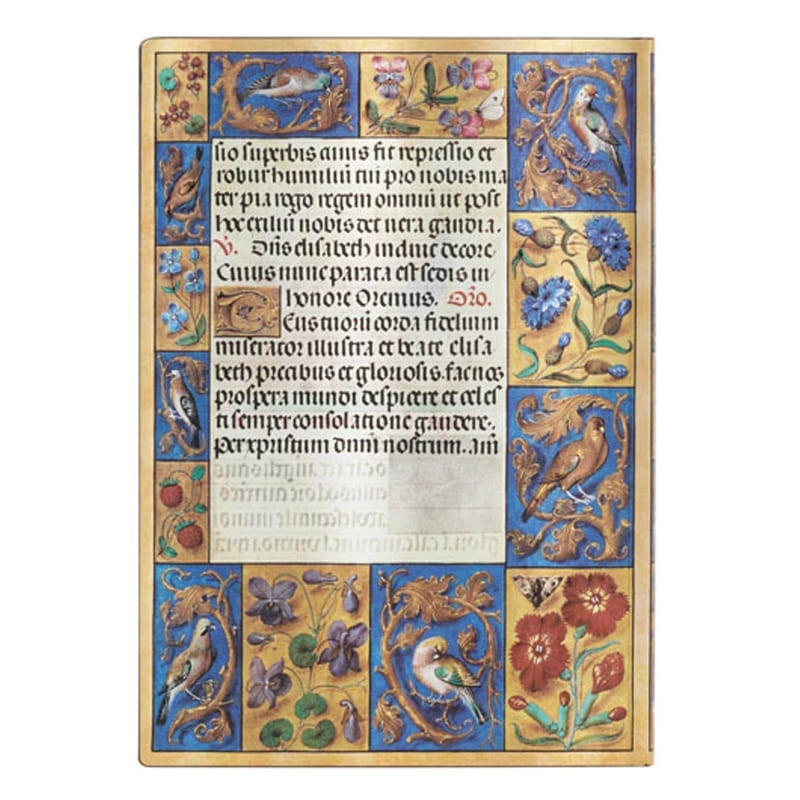 sio superbis cuius fit repressio et
robur humiliū tui pro nobis ma
ter pia rogo regem omniū ut post
hoc exiliū nobis det uera gaudia.
V. Dn̄s elisabeth induit decore
Cuius nunc parata est sedis in
honore Oremus. Or̄o.
Eus tuorū corda fidelium
miserator illustra et beate elisa
beth precibus et gloriosis. fac nos
prospera mundi despicere et celes
ti semper consolatione gaudere.
per xpristum dnm̄ nostrum. am̄